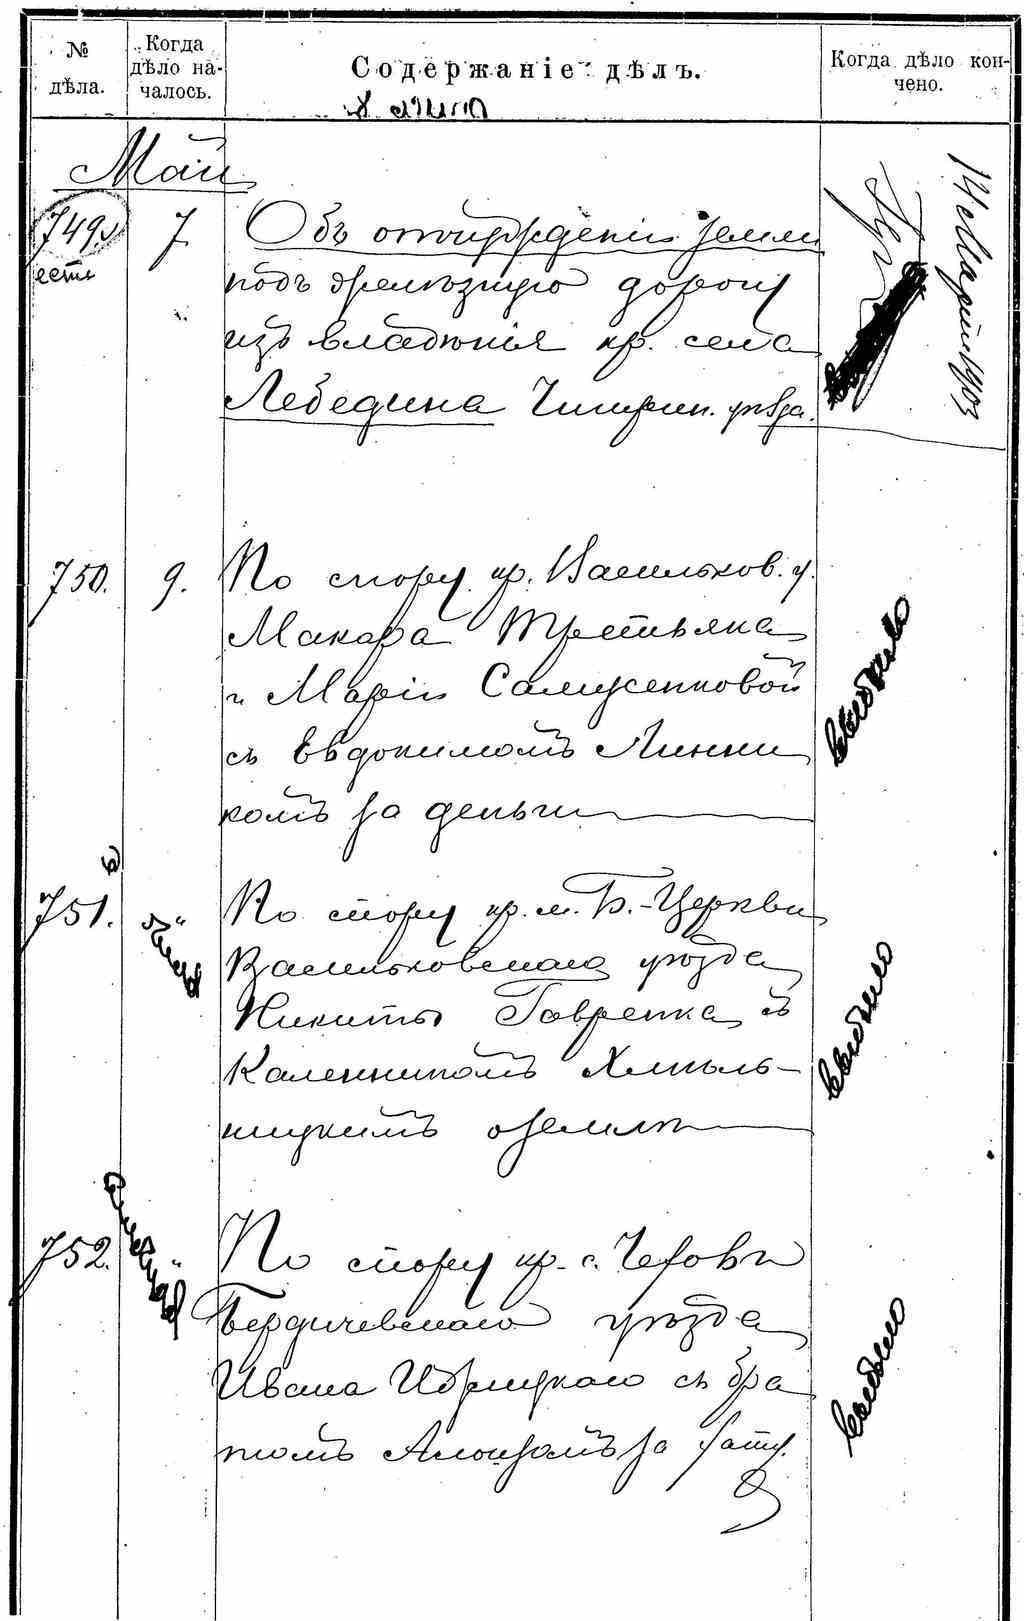 № дѣла.
Когда дѣло на-
чалось.
Содержаніе дѣлъ.
Когда дѣло кон-
чено.
Май
749.
есть
7
Объ отчужденіи земли
подъ желѣзную дорогу
изъ владѣнія кр. села
Лебедина Чигирин. уѣзда.
14 Марта 1903
750.
9.
По спору кр. Васильков. у.
Макара Третьяка
и Маріи Самусенковой
съ Евдокимомъ Линни
комъ за деньги
выбыло
751.
"
По спору кр. м. Б.-Церкви
Васильковскаго уѣзда
Никиты Гавренка съ
Каленникомъ Хмѣль-
ницкимъ о землѣ
выбыло
752.
"
По спору кр. с.
Бердичевскаго уѣзда
Ивана съ бра
томъ за хату.
выбыло